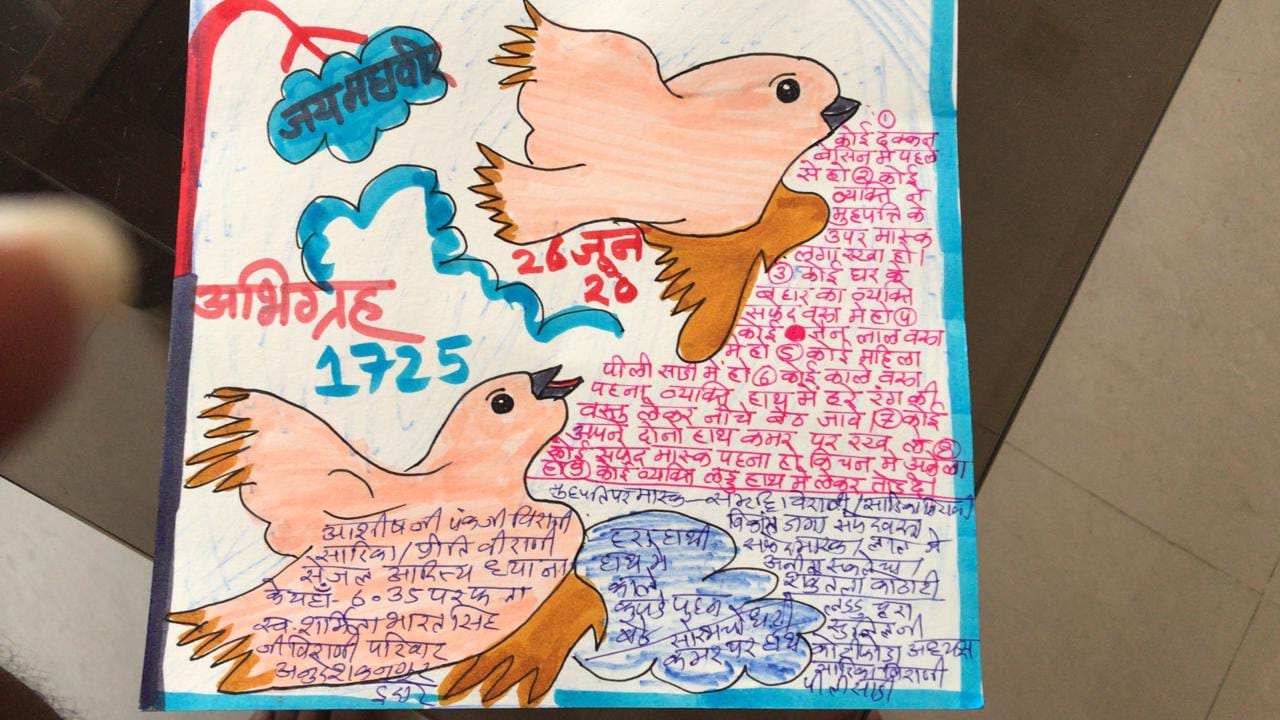 जय महावीर
26 जून
20
अभिग्रह
1725
①
कोई दक्कन
बेसिन में पहले
से हो ② कोई
व्यक्ति ने
मुहपत्ति के
उपर मास्क
लगा रखा हो।
③ कोई घर के
बहार का व्यक्ति
सफेद वस्त्र में हो ④
कोई जैन लाल वस्त्र
में हो ⑤ कोई महिला
पीली साडी में हो ⑥ कोई काले वस्त्र
पहना व्यक्ति हाथ में हरे रंग की
वस्तु लेकर नीचे बैठ जावे। ⑦ कोई
अपने दोनो हाथ कमर पर रख ले ⑧
कोई सफेद मास्क पहना हो किचन में अकेला
हो ⑨ कोई व्यक्ति लड्डू हाथ में लेकर तोड दे।
मुहपत्ति पर मास्क विराणी / सारिका विराणी
विकास डागा सफेद वस्त्र
सफेद मास्क / लाल में
अनीता
शकुंतला कोठारी
लड्डू
आशीष जी पंकजी विराणी
सारिका / प्रीति वीराणी
सेजल आदित्य ध्याना
के यहाँ - 6.35 पर
स्व. शर्मिला भारत सिंह
जी विराणी परिवार
हाथ में
काले
कपडे पहन
बैठे
कमर पर हाथ
सारिका विराणी
पीली साडी